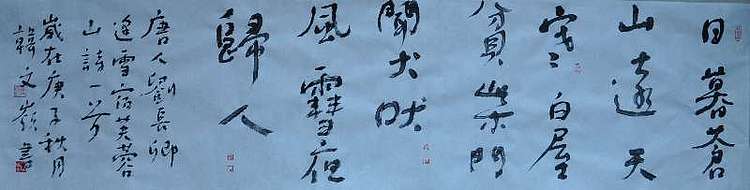 日暮蒼
山遠天
寒白屋
貧柴門
聞犬吠
風雪夜
歸人
唐人劉長卿
逢雪宿芙蓉
山詩一首
歲在庚子秋月
韓文嶺書